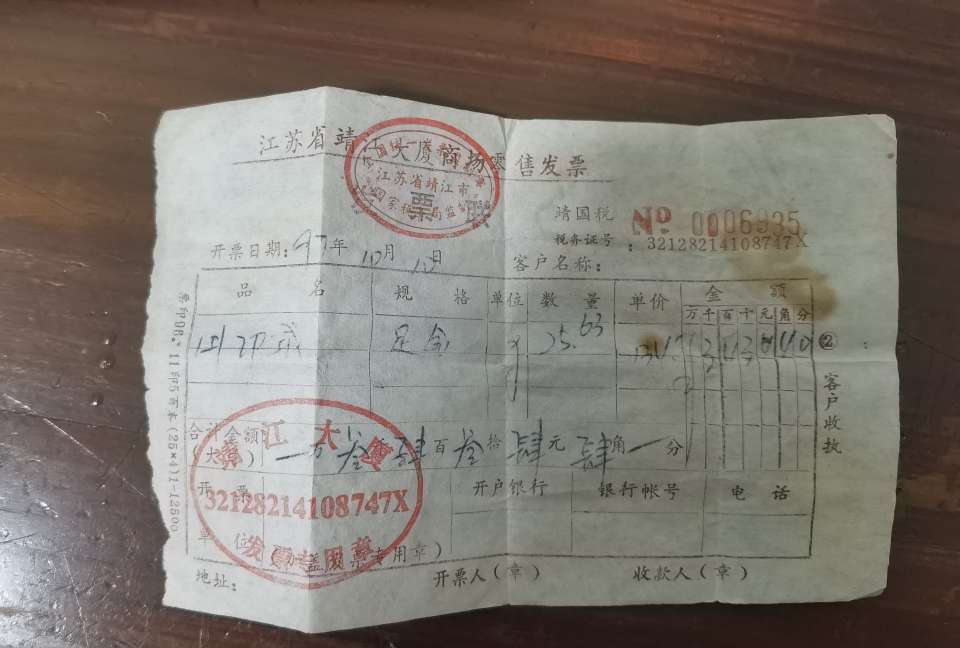 江苏省靖江大厦商场零售发票
江苏省靖江市
国家税务局监制
票
靖国税 № 0006935
税务证号：32128214108747X
开票日期：97年10月10日
客户名称：
品名 规格 单位 数量 单价 金额
万千百十元角分
足金 25.63
② 客户收执
合计金额（大写） 一万叁千肆百叁拾肆元肆角一分
靖江大厦
32128214108747X
发票专用章
开票单位 开户银行 银行帐号 电话
（加盖发票专用章）
地址： 开票人（章） 收款人（章）